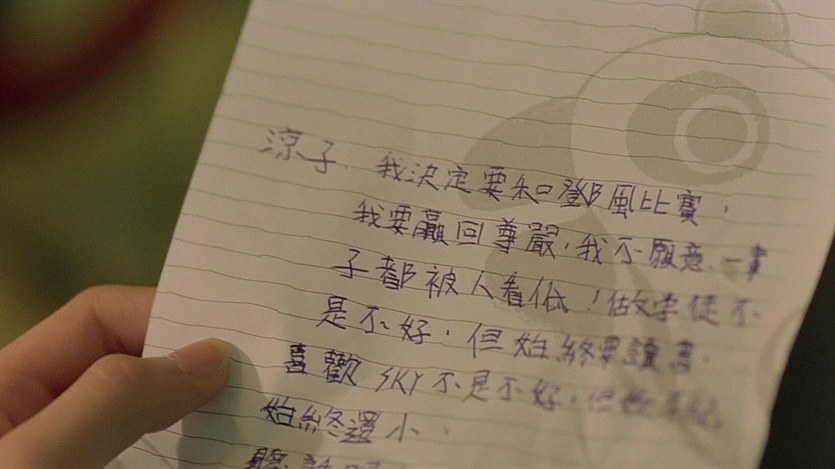 涼子，我決定要和鄧風比賽，
我要贏回尊嚴，我不願意一輩
子都被人看低！做學徒不
是不好，但始終要讀書。
喜歡SKY不是不好，但你年紀
始終還小。
聽話